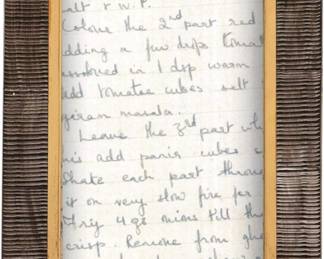 salt & W.P.
Colour the 2nd part red
adding a few drops tomat
dissolved in 1 dsp warm
Add tomatoe cubes salt
garam masala.
Leave the 3rd part whi
this add panir cubes
Shake each part thorou
it on very slow fire for
Fry 4 gs onions till the
crisp. Remove from ghe